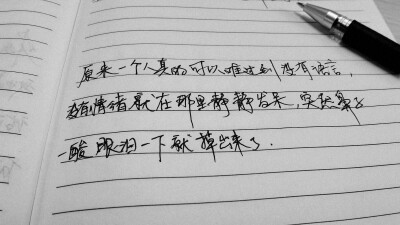 原来一个人真的可以难过到没有语言，
没有情绪就在那里静静发呆，突然鼻子
一酸眼泪一下就掉出来了.